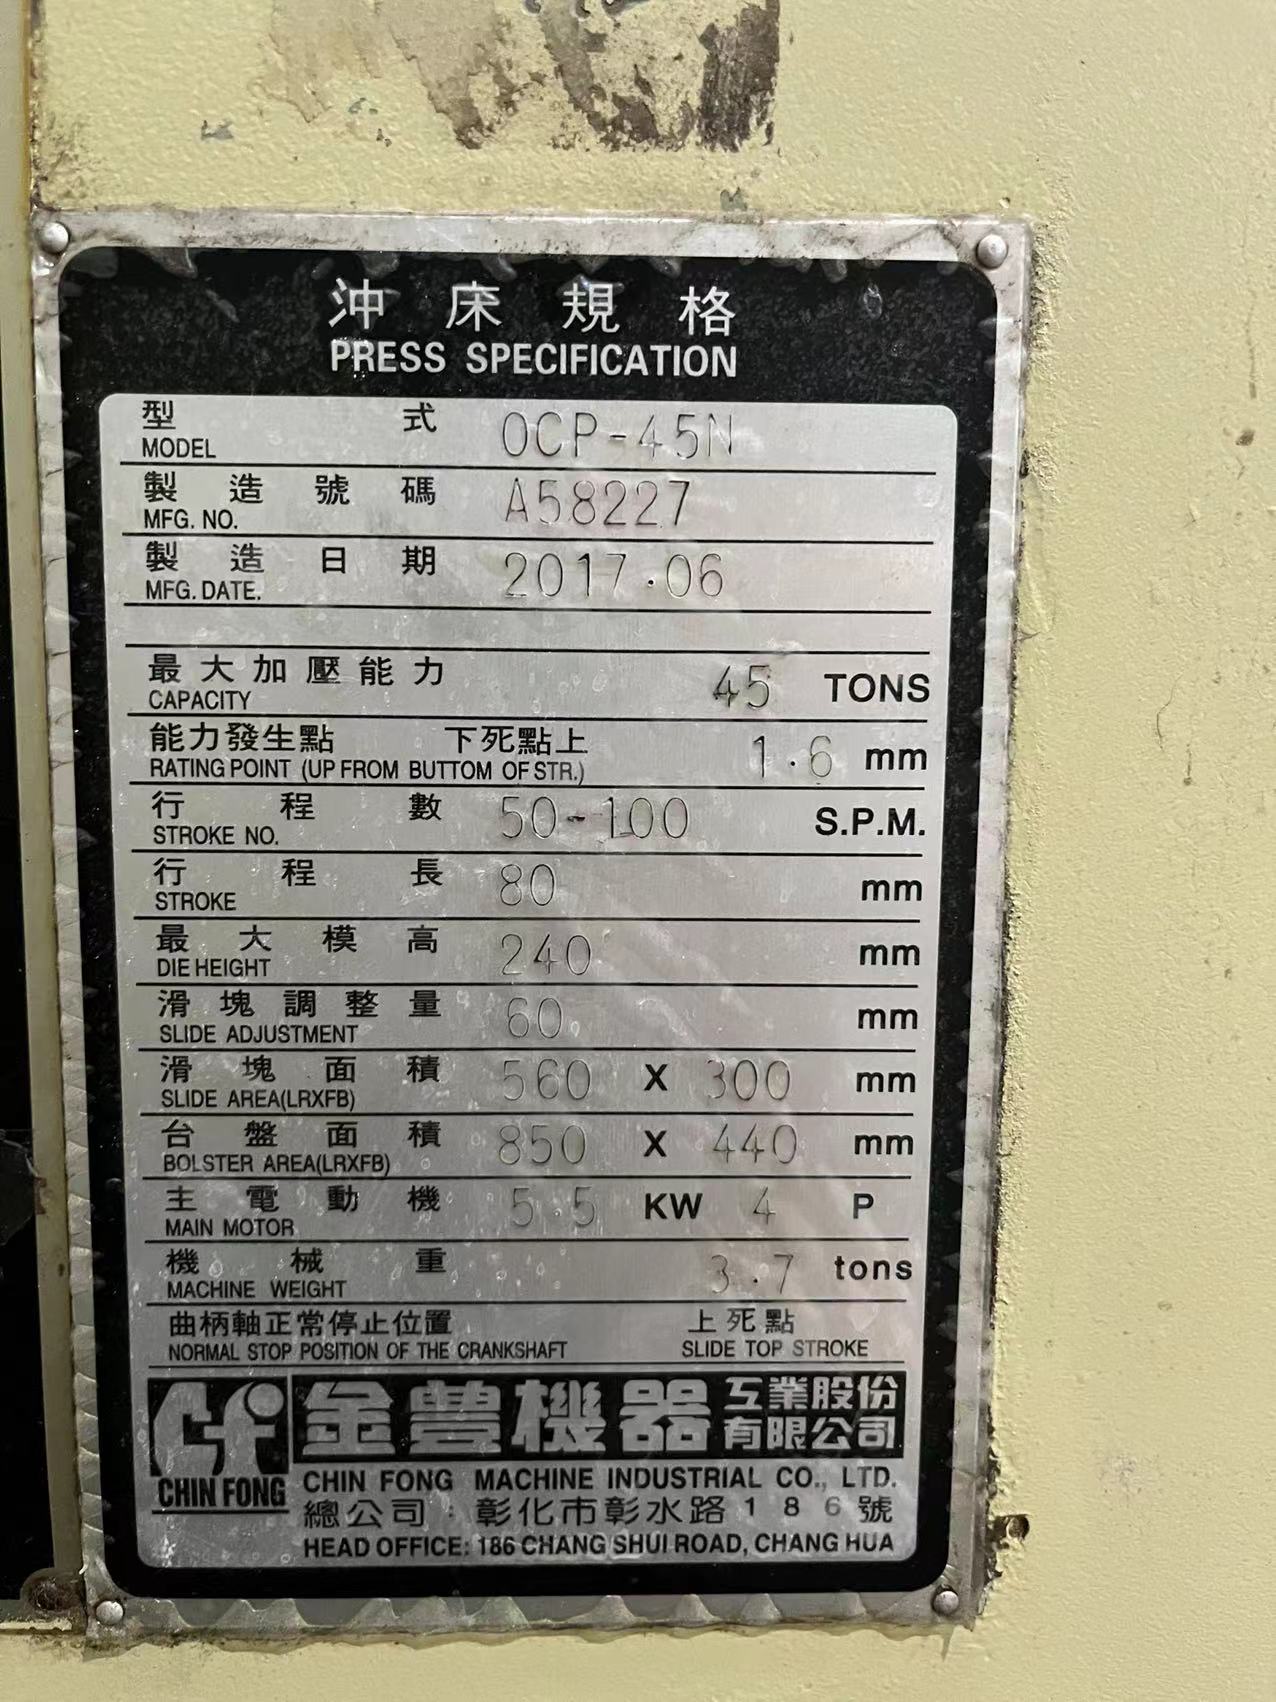 沖床規格
PRESS SPECIFICATION
型式 OCP-45N
MODEL
製造號碼 A58227
MFG. NO.
製造日期 2017.06
MFG. DATE.
最大加壓能力 45 TONS
CAPACITY
能力發生點 下死點上 1.6 mm
RATING POINT (UP FROM BUTTOM OF STR.)
行程數 50-100 S.P.M.
STROKE NO.
行程長 80 mm
STROKE
最大模高 240 mm
DIE HEIGHT
滑塊調整量 60 mm
SLIDE ADJUSTMENT
滑塊面積 560 X 300 mm
SLIDE AREA(LRXFB)
台盤面積 850 X 440 mm
BOLSTER AREA(LRXFB)
主電動機 5.5 KW 4 P
MAIN MOTOR
機械重 3.7 tons
MACHINE WEIGHT
曲柄軸正常停止位置 上死點
NORMAL STOP POSITION OF THE CRANKSHAFT SLIDE TOP STROKE
金豐機器工業股份有限公司
CHIN FONG
CHIN FONG MACHINE INDUSTRIAL CO., LTD.
總公司：彰化市彰水路186號
HEAD OFFICE: 186 CHANG SHUI ROAD, CHANG HUA